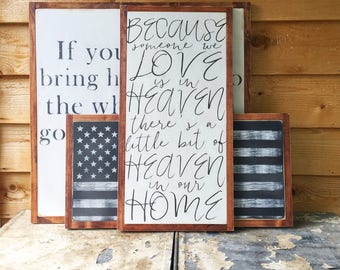 If you
bring h
to
the w
go
BECAUSE
someone we
LOVE
is in
HEAVEN
there's a
little bit of
HEAVEN
in our
HOME